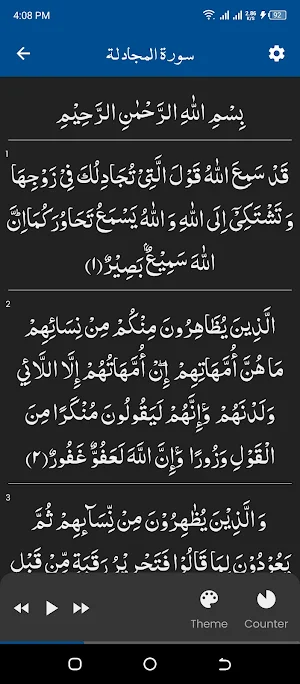 4:08 PM
2.86 K/s
92
سورة المجادلة
بِسْمِ اللهِ الرَّحْمٰنِ الرَّحِيْمِ
1
قَدْ سَمِعَ اللهُ قَوْلَ الَّتِيْ تُجَادِلُكَ فِيْ زَوْجِهَا
وَ تَشْتَكِيْۤ اِلَى اللهِ وَ اللهُ يَسْمَعُ تَحَاوُرَكُمَا اِنَّ
اللهَ سَمِيْعٌۢ بَصِيْرٌ (۱)
2
الَّذِينَ يُظَاهِرُونَ مِنْكُمْ مِنْ نِسَائِهِمْ
مَا هُنَّ أُمَّهَاتِهِمْ إِنْ أُمَّهَاتُهُمْ إِلَّا اللَّائِي
وَلَدْنَهُمْ وَإِنَّهُمْ لَيَقُولُونَ مُنْكَرًا مِنَ
الْقَوْلِ وَزُورًا وَإِنَّ اللَّهَ لَعَفُوٌّ غَفُورٌ (۲)
3
وَ الَّذِيْنَ يُظٰهِرُوْنَ مِنْ نِّسَآىِٕهِمْ ثُمَّ
يَعُوْدُوْنَ لِمَا قَالُوْا فَتَحْرِيْرُ رَقَبَةٍ مِّنْ قَبْلِ
Theme
Counter